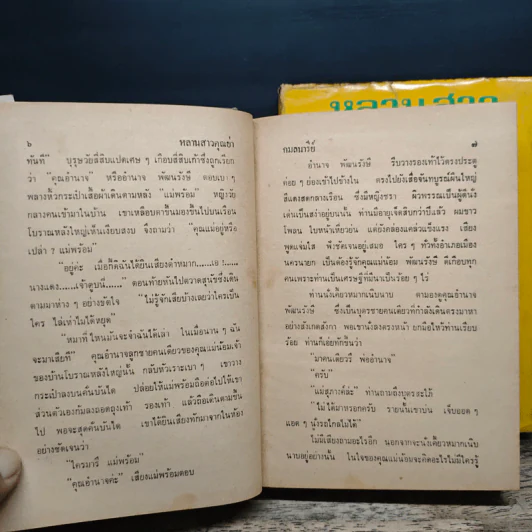 ๖ หลานสาวคุณย่า
ทันที" บุรุษวัยสี่สิบแปดเศษ ๆ เกือบสี่สิบเก้าซึ่งถูกเรียก
ว่า "คุณอำนาจ" หรืออำนาจ พัฒนรังษี ตอบเบา ๆ
พลางหิ้วกระเป๋าเสื้อผ้าเดินตามหลัง "แม่พร้อม" หญิงวัย
กลางคนเข้ามาในบ้าน เขาเหลือบตาขึ้นมองขึ้นไปบนเรือน
โบราณหลังใหญ่เห็นเงียบสงบ จึงถามว่า "คุณแม่อยู่หรือ
เปล่า ? แม่พร้อม"
"อยู่ค่ะ เมื่อกี้ดิฉันได้ยินเสียงตำหมาก......เอ๊ะ!......
นางแดง......เจ้าตูบ...... ตอนท้ายหันไปตวาดสุนัขซึ่งเดิน
ตามมาห่าง ๆ อย่างขัดใจ "ไม่รู้จักเสียบ้างเลยว่าใครเป็น
ใคร ไล่เห่าไม่ได้หยุด"
"หมาที่ไหนมันจะจำฉันได้เล่า ในเมื่อนาน ๆ ฉัน
จะมาเสียที" คุณอำนาจลูกชายคนเดียวของคุณแม่น้อมเจ้า
ของบ้านโบราณหลังใหญ่นั้น กลับหัวเราะเบา ๆ เขาวาง
กระเป๋าลงบนคั่นบันได ปล่อยให้แม่พร้อมถือต่อไปให้เขา
ส่วนตัวเองก้มลงถอดถุงเท้า รองเท้า แล้วถือเดินตามขึ้น
ไป พอจะสุดคั่นบันได เขาได้ยินเสียงทักมาจากในห้อง
อย่างชัดเจนว่า
"ใครมารึ แม่พร้อม"
"คุณอำนาจค่ะ" เสียงแม่พร้อมตอบ
กมลนารีย์ ๗
อำนาจ พัฒนรังษี รีบวางรองเท้าไว้ตรงประตู
ค่อย ๆ ย่องเข้าไปข้างใน ตรงไปยังเสื่อจันทบูรณ์ผืนใหญ่
สีแดงสดกลางเรือน ซึ่งมีหญิงชรา ผิวพรรณเป็นผู้ดีนั่ง
เด่นเป็นสง่าอยู่บนนั้น ท่านมีอายุเจ็ดสิบกว่าปีแล้ว ผมขาว
โพลน ใบหน้าเหี่ยวย่น แต่ยังคล่องแคล่วแข็งแรง เสียง
พูดแจ่มใส ฟังชัดเจนอยู่เสมอ ใคร ๆ ทั่วทั้งอำเภอเมือง
นครนายก เป็นต้องรู้จักคุณแม่น้อม พัฒนรังษี ดีเกือบทุก
คนเพราะท่านเป็นเศรษฐีที่มีนาเป็นร้อย ๆ ไร่
ท่านนั่งเคี้ยวหมากเนิบนาบ ตามองดูคุณอำนาจ
พัฒนรังษี ซึ่งเป็นบุตรชายคนเดียวที่กำลังเดินตรงมาหา
อย่างสังเกตสังกา พอเขานั่งลงตรงหน้า ยกมือไหว้ท่านเรียบ
ร้อย ท่านก็เอ่ยทักขึ้นว่า
"มาคนเดียวรึ พ่ออำนาจ"
"ครับ"
"แม่สุภางค์ล่ะ" ท่านถามถึงบุตรสะใภ้
"ไม่ได้มาหรอกครับ รายนั้นเขาบ่น เจ็บออด ๆ
แอด ๆ นั่งรถไกลไม่ได้"
ไม่มีเสียงถามอะไรอีก นอกจากจะนั่งเคี้ยวหมากเนิบ
นาบอยู่อย่างนั้น ในใจของคุณแม่น้อมจะคิดอะไรไม่มีใครรู้
หลานสาว